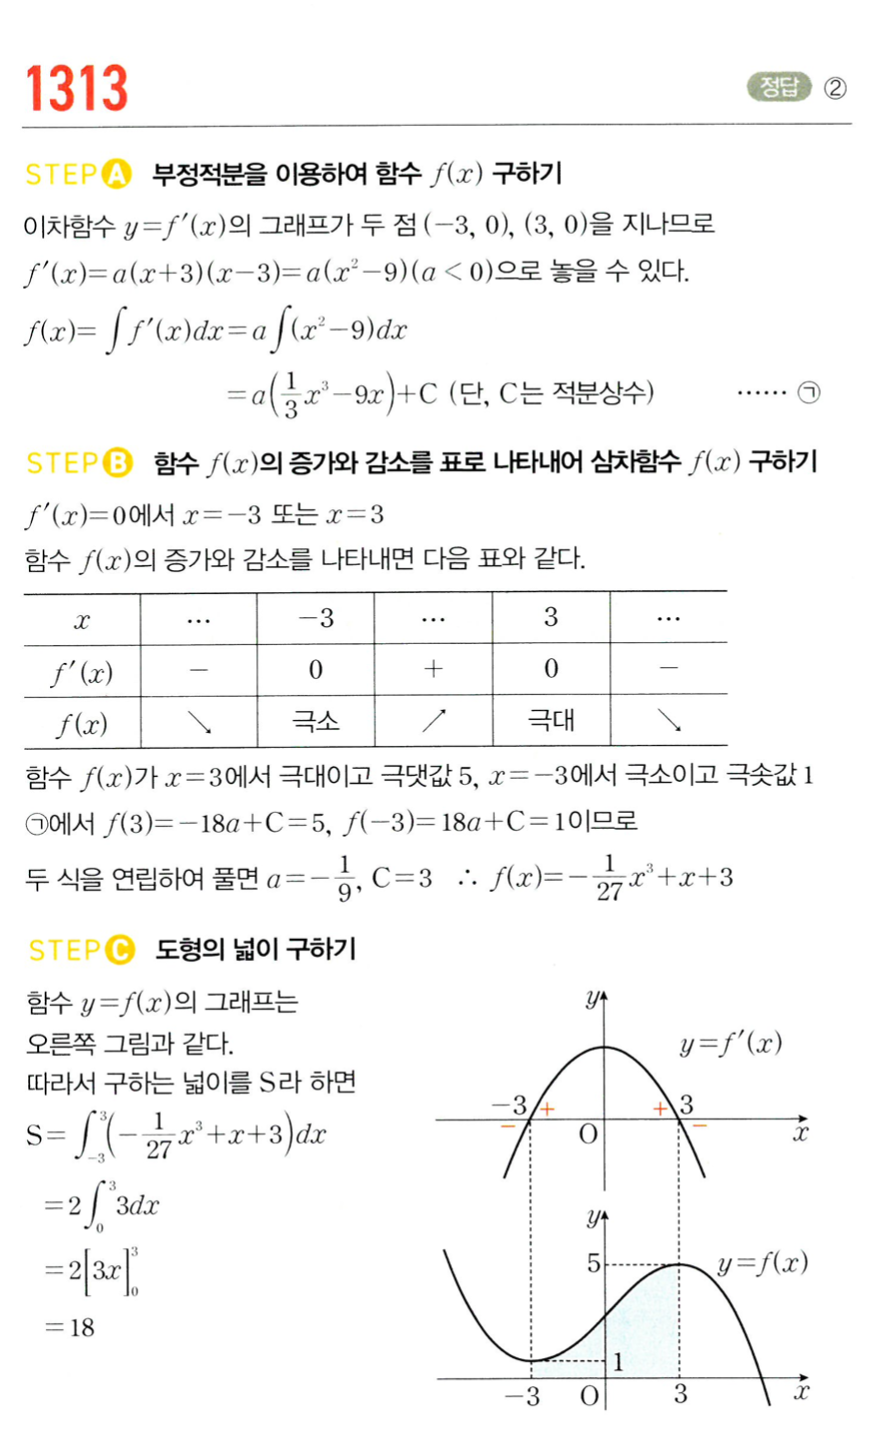 1313
정답 ②
STEP A 부정적분을 이용하여 함수 f(x) 구하기
이차함수 y=f′(x)의 그래프가 두 점 (−3, 0), (3, 0)을 지나므로
f′(x)=a(x+3)(x−3)=a(x²−9)(a < 0)으로 놓을 수 있다.
f(x)=∫f′(x)dx=a∫(x²−9)dx
=a(1/3 x³−9x)+C (단, C는 적분상수) …… ㉠
STEP B 함수 f(x)의 증가와 감소를 표로 나타내어 삼차함수 f(x) 구하기
f′(x)=0에서 x=−3 또는 x=3
함수 f(x)의 증가와 감소를 나타내면 다음 표와 같다.
x … −3 … 3 …
f′(x) − 0 + 0 −
f(x) ↘ 극소 ↗ 극대 ↘
함수 f(x)가 x=3에서 극대이고 극댓값 5, x=−3에서 극소이고 극솟값 1
㉠에서 f(3)=−18a+C=5, f(−3)=18a+C=1이므로
두 식을 연립하여 풀면 a=−1/9, C=3 ∴ f(x)=−1/27 x³+x+3
STEP C 도형의 넓이 구하기
함수 y=f(x)의 그래프는
오른쪽 그림과 같다.
따라서 구하는 넓이를 S라 하면
S=∫₋₃³(−1/27 x³+x+3)dx
=2∫₀³3dx
=2[3x]₀³
=18
y
y=f′(x)
−3 + + 3
− O − x
y
5 y=f(x)
1
−3 O 3 x